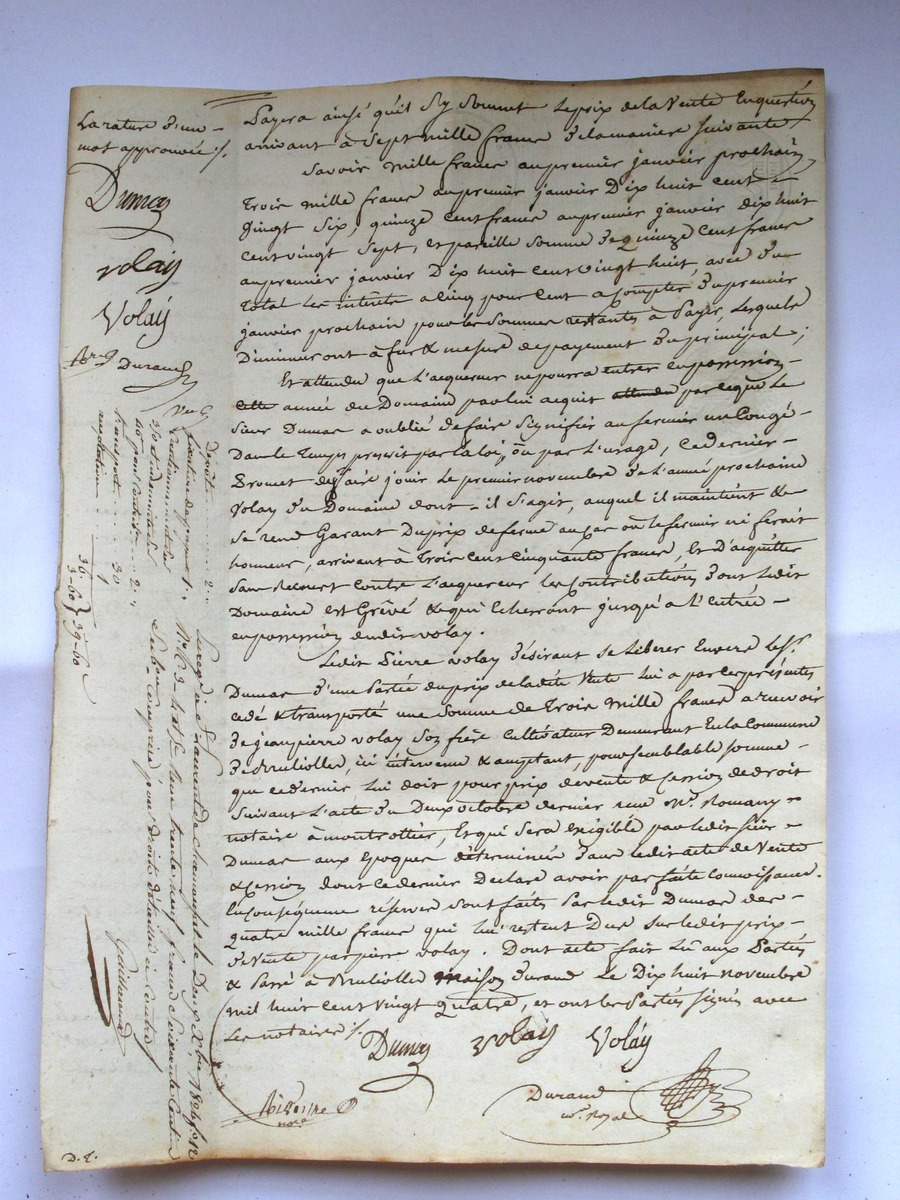 La rature d'un
mot approuvée ./.
Dumas
volay
Volay
Durand
Payera ainsi qu'il s'y soumet le prix de la Vente En question
arrivant à Sept mille francs de la manière suivante
Savoir mille francs au premier janvier prochain,
Trois mille francs au premier janvier Dix huit cent
Vingt Six, quinze cent francs au premier janvier dix huit
cent vingt Sept, et pareille Somme de Quinze Cent francs
au premier janvier Dix huit Cent vingt huit, avec du
Total les intérêts a cinq pour Cent a Compter du premier
janvier prochain pour les Sommes restantes à Payer, lesquels
Diminueront à fur & mesure de payement du principal;
Et attendu que l'acquereur ne pourra entrer en possession
cette année du Domaine par lui acquit attendu parceque Le
Sieur Dumas a oublié de faire Signifier au fermier un Congé
Dans le Temps prescrit par la loi, ou par l'usage, ce dernier
Promet de faire jouir le premier novembre de l'année prochaine
Volay du Domaine dont il s'agit, auquel il maintient &
Se rend Garant Du prix de ferme au cas où le fermier n'y ferait
honneur, arrivant à Trois Cent Cinquante francs, Et D'acquitter
Sans Recours Contre l'acquereur les Contributions dont Ledit
Domaine est Grevé & qui Echerront jusqu'à l'Entrée
en possession dudit volay.
Ledit Pierre volay désirant se Libérer Envers Led. Sr.
Dumas d'une Partie du prix de ladite Vente lui a par ces présentes
cédé & transporté une Somme de Trois mille francs a recevoir
de jean pierre volay Son frère Cultivateur Demeurant En la Commune
de Brullioles, ici intervenu & acceptant, pour Semblable Somme
que ce dernier lui doit pour prix de vente & Cession de droit
Suivant L'acte du Deux octobre dernier reçu Me. Romany
notaire à montrottier, Et qui Sera exigible par ledit Sieur
Dumas aux époques déterminées dans ledit acte de Vente
& Cession dont ce dernier Déclare avoir parfaite Connaissance.
En Conséquence réserves Sont faites Par ledit Dumas des
Quatre mille francs qui lui restent Dus Sur ledit prix
de Vente par pierre volay. Dont acte fait Lu aux Parties
& Passé à Brullioles maison Durand Le Dix huit novembre
mil huit Cent Vingt Quatre, et ont les Parties Signés avec
Les notaires ./.
Dumas volay Volay
Durand
no.re Royal
Enregistré à St Laurent de chamousset le Deux Xbre 1824
trente neuf francs Soixante Centimes
36
3-60 } 39-60
D.E.